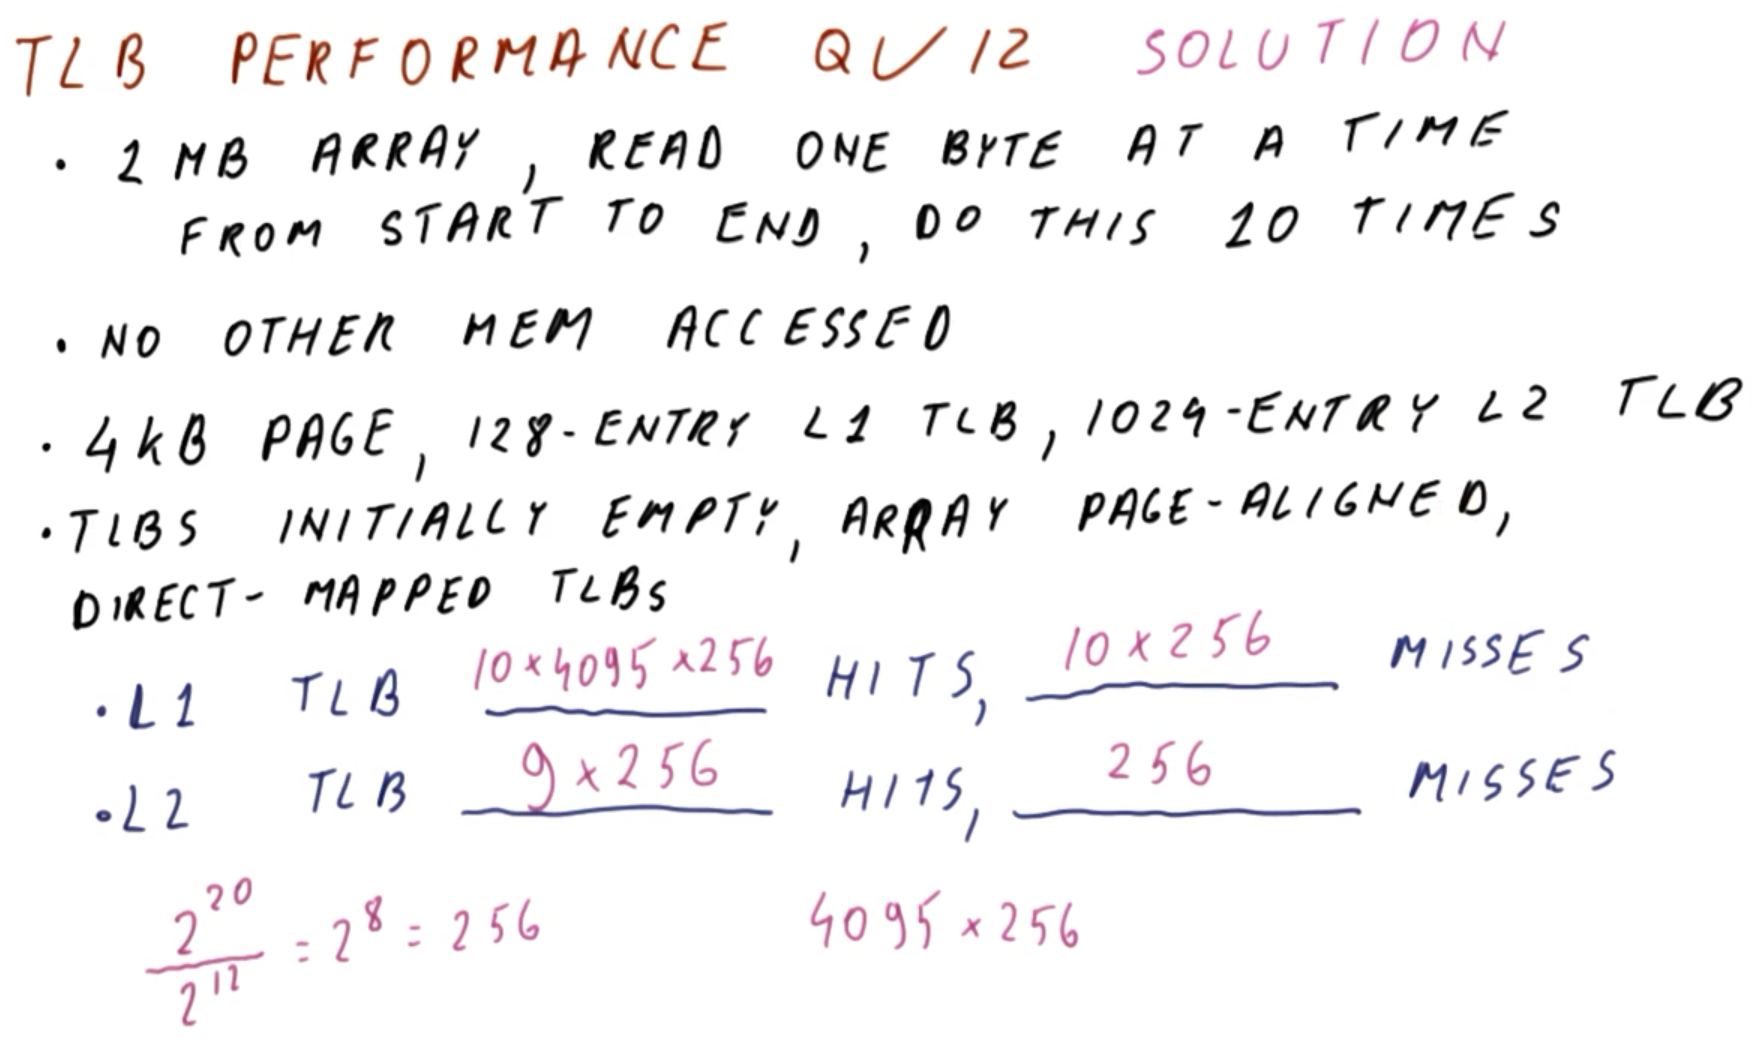 TLB PERFORMANCE QUIZ SOLUTION
• 1 MB ARRAY, READ ONE BYTE AT A TIME
FROM START TO END, DO THIS 10 TIMES
• NO OTHER MEM ACCESSED
• 4kB PAGE, 128-ENTRY L1 TLB, 1024-ENTRY L2 TLB
• TLBS INITIALLY EMPTY, ARRAY PAGE-ALIGNED,
DIRECT-MAPPED TLBs
• L1 TLB 10×4095×256 HITS, 10×256 MISSES
• L2 TLB 9×256 HITS, 256 MISSES
2^20/2^12 = 2^8 = 256 4095×256